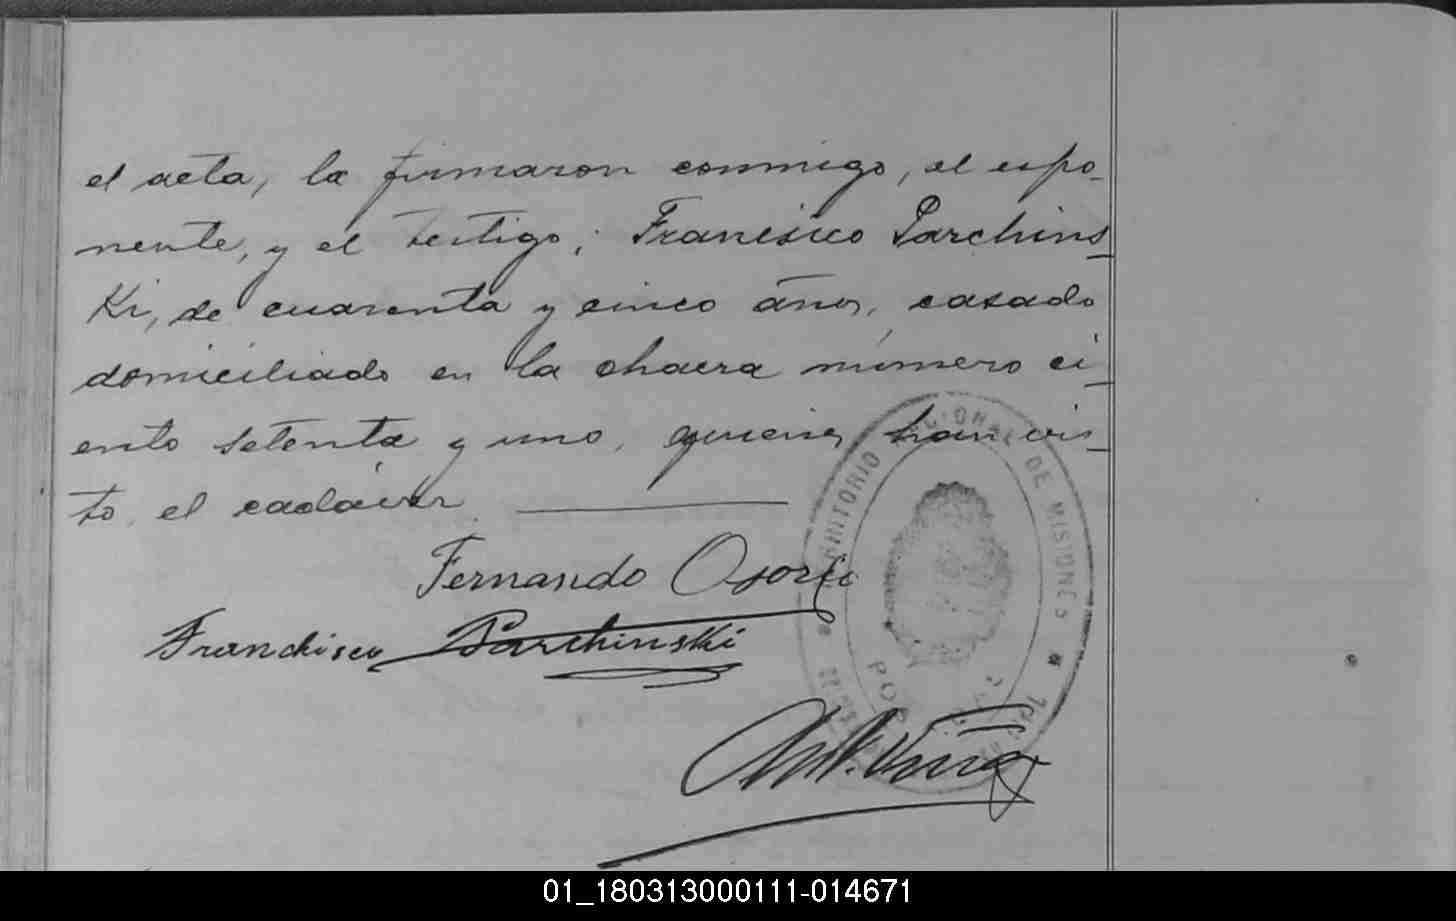 el acta, la firmaron conmigo, el espo-
nente, y el testigo; Francisco Parchins
Ki, de cuarenta y cinco años, casado
domiciliado en la chacra número ci-
ento setenta y uno, quienes han vis-
to, el cadáver
Fernando Osorio
Franchisco Parchinski
TERRITORIO NACIONAL DE MISIONES
01_180313000111-014671